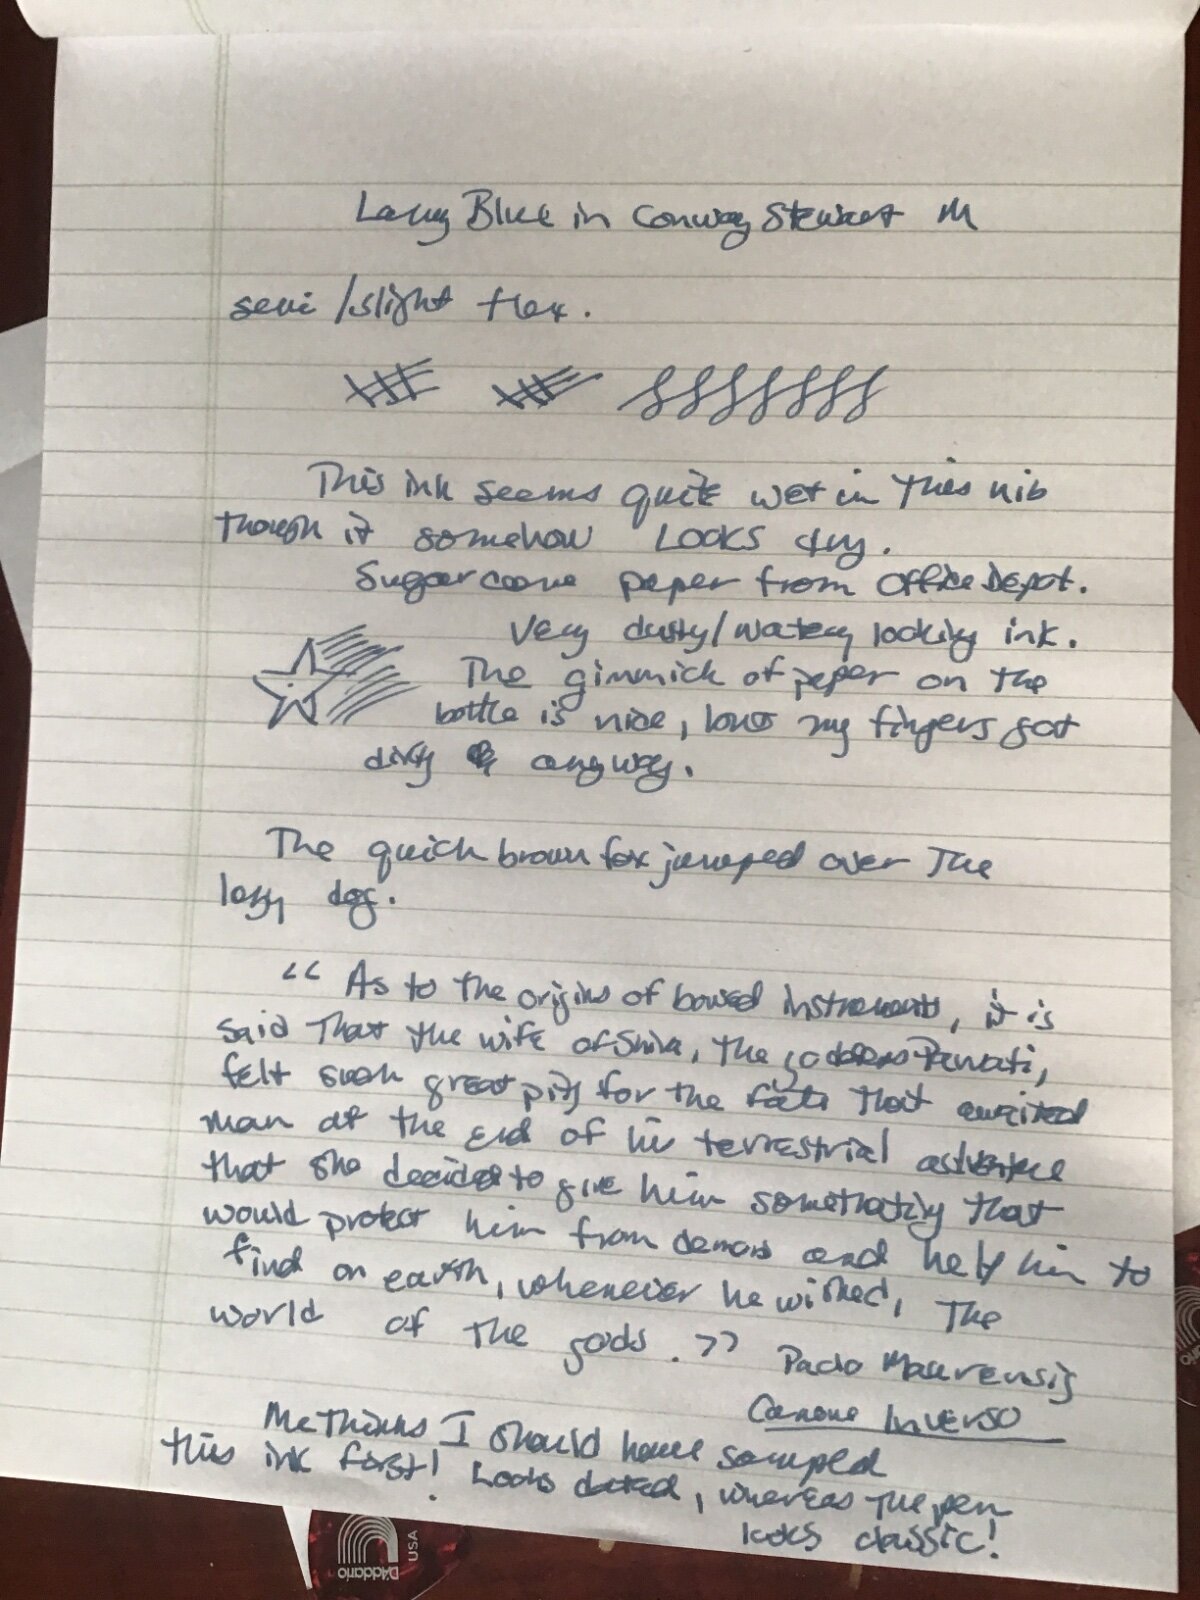 Lamy Blue in Conway Stewart M
semi / slight flex.
This ink seems quite wet in this nib
though it somehow LOOKS dry.
Sugar cane paper from Office Depot.
Very dusty/watery looking ink.
The gimmick of paper on the
bottle is nice, but my fingers got
dirty anyway.
The quick brown fox jumped over The
lazy dog.
“ As to the origins of bowed instruments, it is
said That the wife of Shiva, The goddess Parvati,
felt such great pity for the fate that awaited
man at the end of his terrestrial adventure
that she decided to give him something that
would protect him from demons and help him to
find on earth, whenever he wished, The
world of the gods. ”
Paolo Maurensig
Canone Inverso
Methinks I should have sampled
this ink first! Looks dated, whereas the pen
looks classic!
D'Addario
USA